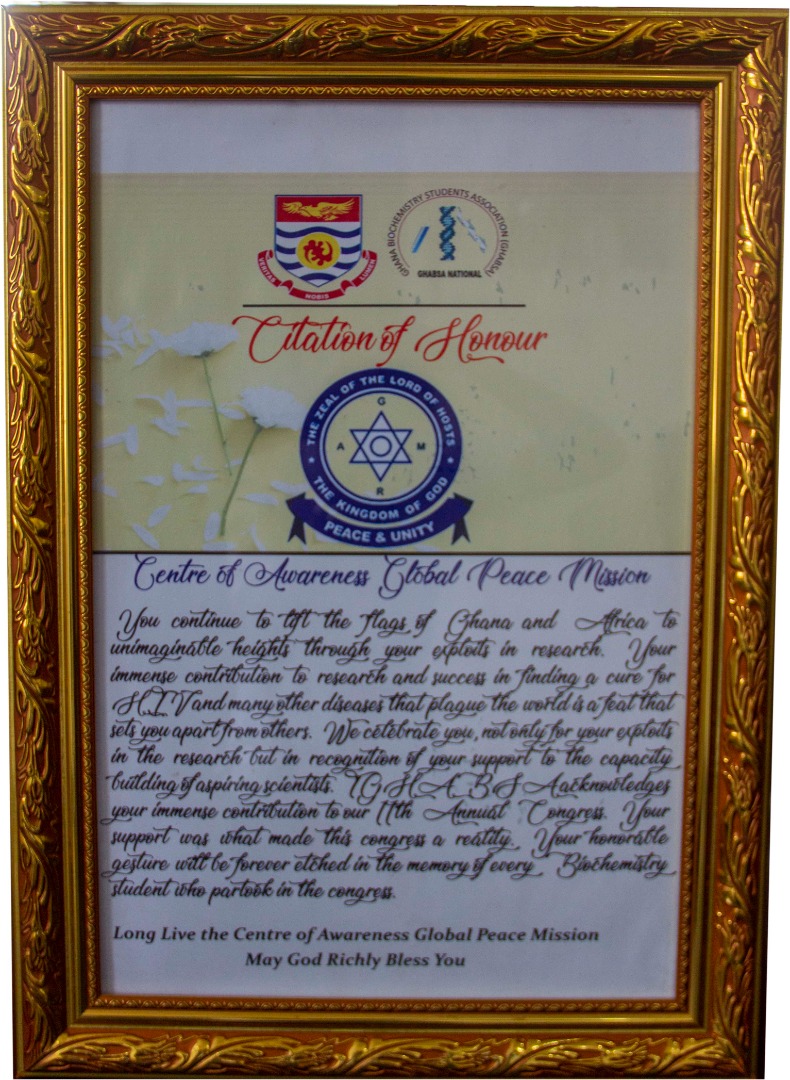 VERITAS NOBIS LUMEN
GHANA BIOCHEMISTRY STUDENTS ASSOCIATION (GHABSA)
GHABSA NATIONAL
Citation of Honour
THE ZEAL OF THE LORD OF HOSTS
G
A M
R
THE KINGDOM OF GOD
PEACE & UNITY
Centre of Awareness Global Peace Mission
You continue to lift the flags of Ghana and Africa to
unimaginable heights through your exploits in research. Your
immense contribution to research and success in finding a cure for
H.I.V and many other diseases that plague the world is a feat that
sets you apart from others. We celebrate you, not only for your exploits
in the research but in recognition of your support to the capacity
building of aspiring scientists. acknowledges
your immense contribution to our 11th Annual Congress. Your
support was what made this congress a reality. Your honorable
gesture will be forever etched in the memory of every Biochemistry
student who partook in the congress.
Long Live the Centre of Awareness Global Peace Mission
May God Richly Bless You